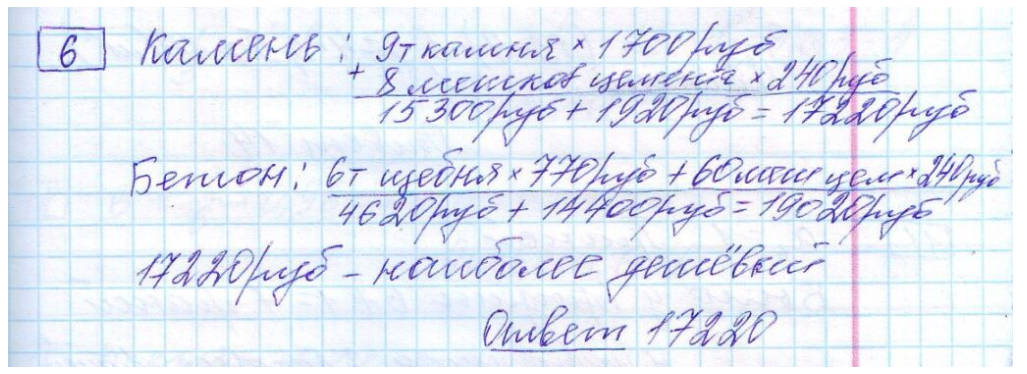 6 Камень: 9т камня × 1700 руб
+ 8 мешков цемента × 240 руб
15300 руб + 1920 руб = 17220 руб
Бетон: 6т щебня × 770 руб + 60 меш цем × 240 руб
4620 руб + 14400 руб = 19020 руб
17220 руб – наиболее дешёвкий
Ответ 17220